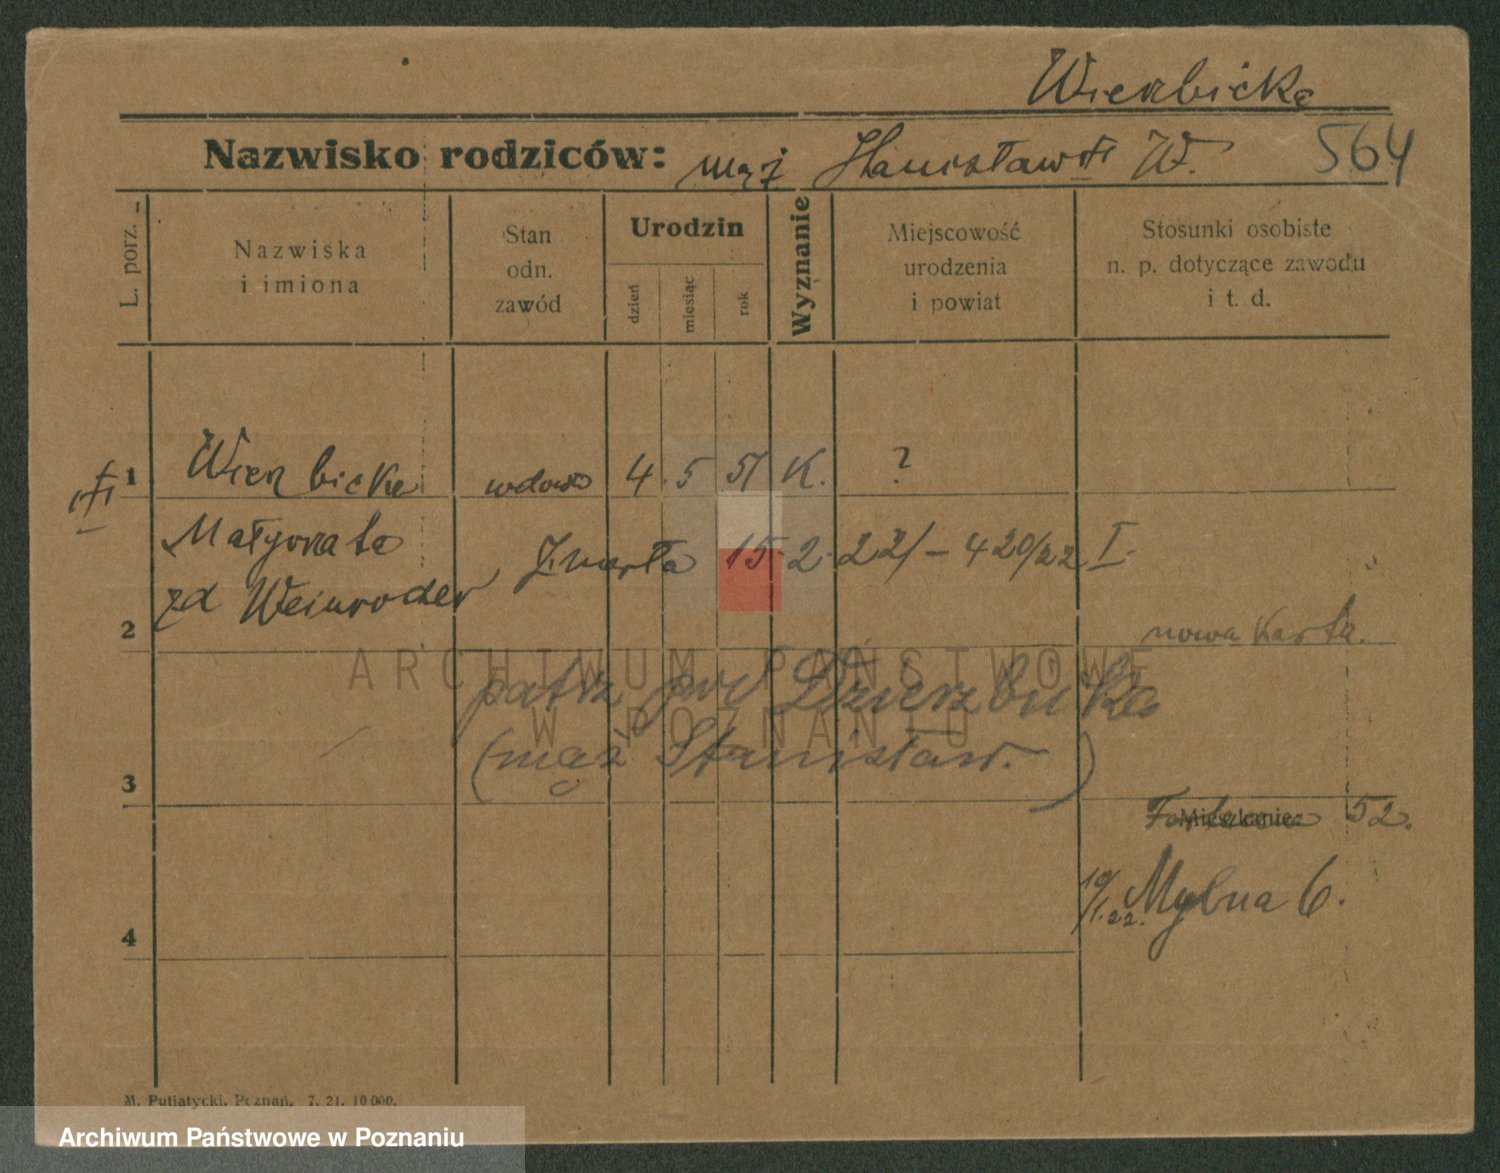 Wierzbicka
Nazwisko rodziców: mąż Stanisław W. 564
L. porz.
Nazwiska
i imiona
Stan
odn.
zawód
Urodzin
dzień
miesiąc
rok
Wyznanie
Miejscowość
urodzenia
i powiat
Stosunki osobiste
n. p. dotyczące zawodu
i t. d.
1 Wierzbicka wdowa 4 5 51 K. ?
Małgorzata
Zmarła 15 2 22/- 420/22 I.
zd Weinroder
2
nowa karta.
patrz pod Dzierzbicka
(mąż Stanisław.)
3
Mieszkanie: 52.
10/1.22. Mylna 6.
4
M. Putiatycki, Poznań. 7. 21. 10 000.
ARCHIWUM PAŃSTWOWE
W POZNANIU
Archiwum Państwowe w Poznaniu